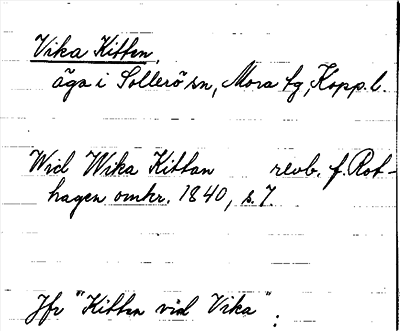 Vika Kitten,
äga i Sollerö sn, Mora tg, Kopp. l.
Wid Wika Kittan revb. f. Rot-
hagen omkr. 1840, s. 7.
Jfr "Kitten vid Vika".